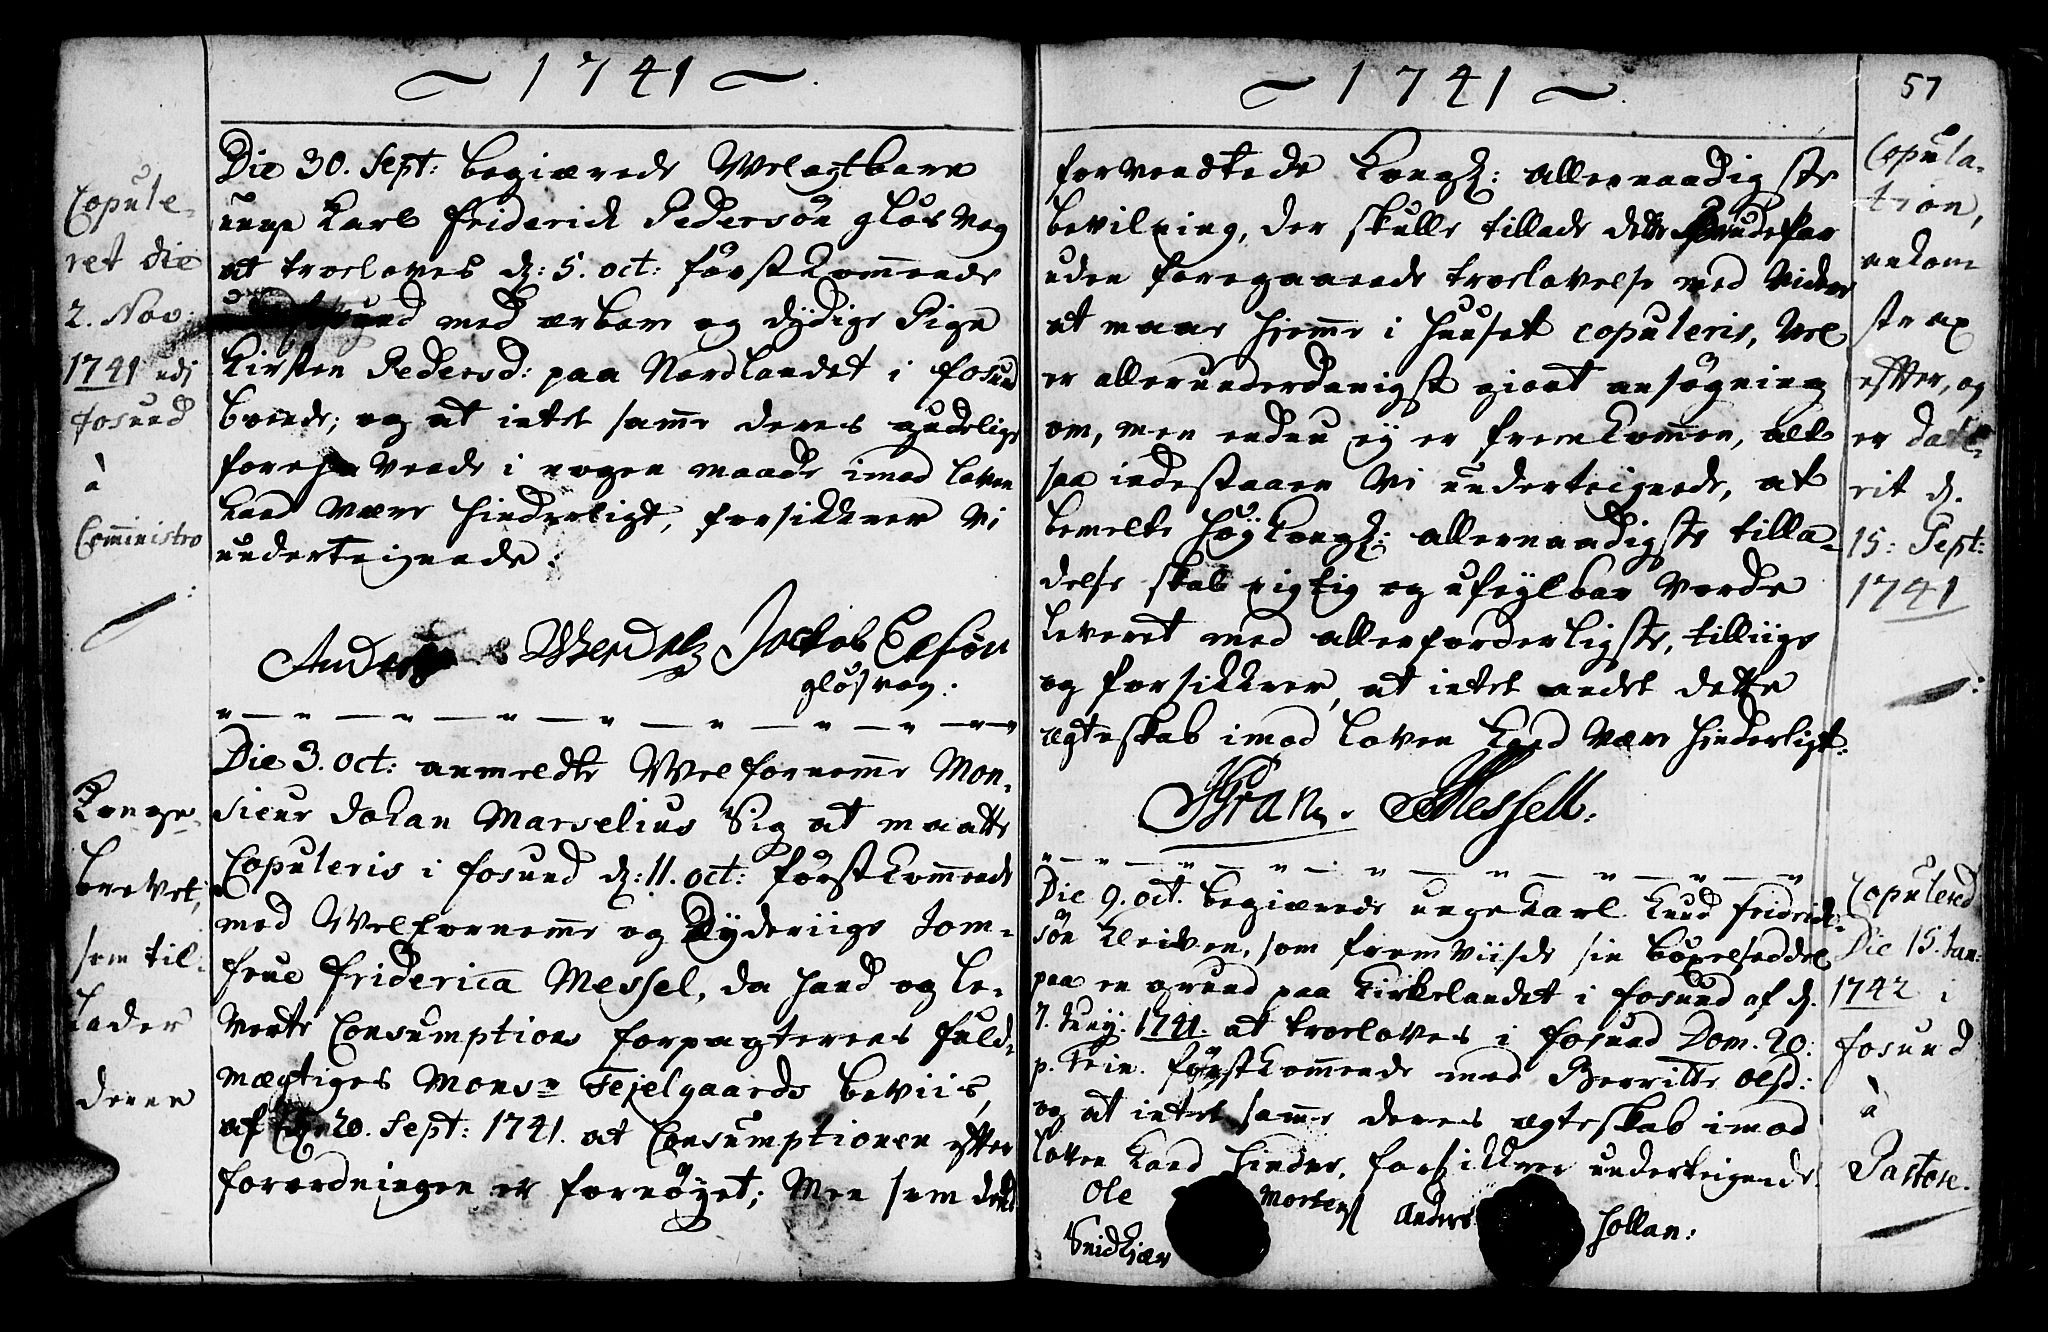 1741
Copule-
ret die
2. Nov:
1741 udj
fosund
à
Comministro
Die 30. Sept: begiærede Velagtbare
unge Karl Friderich Pedersøn gløsvog
at troeloves d: 5. oct: først kommende
med ærbare og dydige Pige
Kirsten Pedersd: paa Nordlandet i fosund
boende; og at intet samme deres gudelige
forehavende i nogen maade imod loven
kand være hinderligt, forsikkrer vi
underteignede:
Anders Wendelz Jockob Elsøn
gløsvog.
Konge-
brevet,
som til-
lader
denne
Die 3. oct: anmeldte Velfornemme Mon-
sieur Johan Marselius Sig at maatte
Copuleris i fosund d: 11. oct: først kommende
med Velfornemme og Dyderiige Jom-
frue Friderica Messel, da hand og le-
verte Consumptions forpagterens fuld-
mægtiges Monsr Tejelgaards beviis,
af den 20. Sept: 1741. at Consumptionen efter
forordningen er fornøyet; Men som dend
1741
57
forventede Kongl: allernaadigste
bevilning, der skulle tillade dette Brudefar
uden foregaaende troelovelse med videre
at maae hjemme i huuset copuleris, vel
er allerunderdanigst giort ansøgning
om, men endnu ej er fremkommen, alt-
saa indestaaer vi underteignede, at
bemelte høyKongl: allernaadigste tilla-
delse skal rigtig og ufeylbar vorde
leveret med allerforderligste, tilliige
og forsikkrer, at intet andet dette
ægteskab imod loven kand være hinderligt:
Fran. Messell:
Copula-
tion,
ankom
strax
efter, og
er date-
rit d.
15: Sept:
1741
Die 9. oct. begiærede unge Karl Knud Friderich-
søn Kleiven, som fremviisde sin bøxelseddel
paa en grund paa Kirkelandet i fosund af d.
7. Junij. 1741. at troeloves i fosund Dom. 20.
p. Trin. først kommende med Berritte Olsd:
og at intet samme deres ægteskab imod
loven kand hindre, forsikkrer underteignede
Ole Morten Anders Hollan:
Snidkjær
Copulered
Die 15. Jan:
1742 i
fosund
à
Pastore.